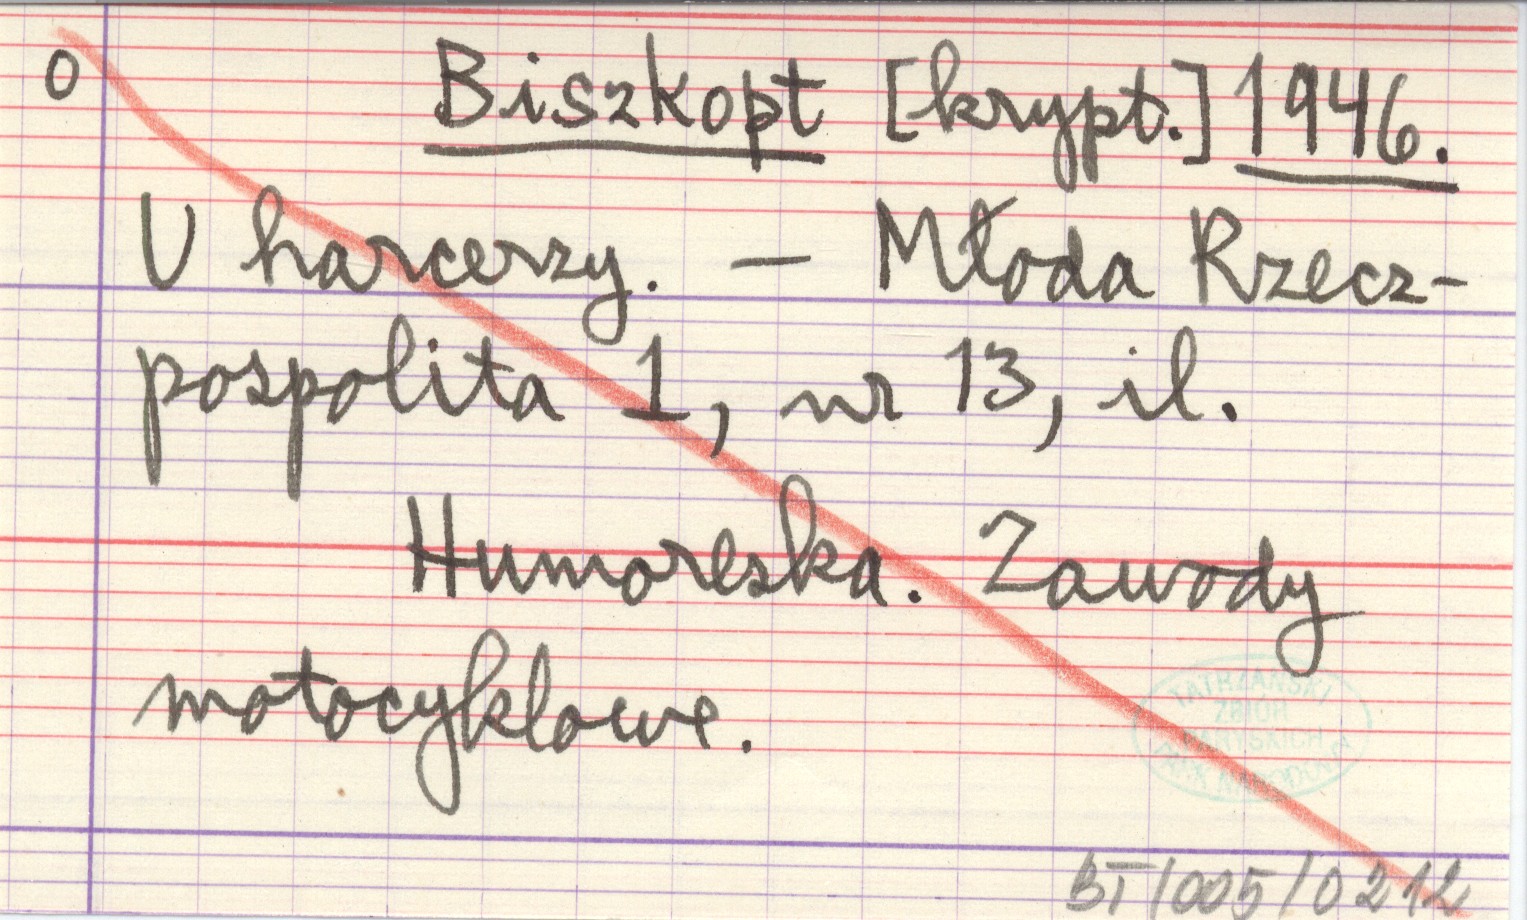 o Biszkopt [krypt.] 1946.
U harcerzy. — Młoda Rzecz-
pospolita 1, nr 13, il.
Humoreska. Zawody
motocyklowe.
TATRZAŃSKI
ZBIÓR
PARYSKICH
PARK NARODOWY
BT/005/0212